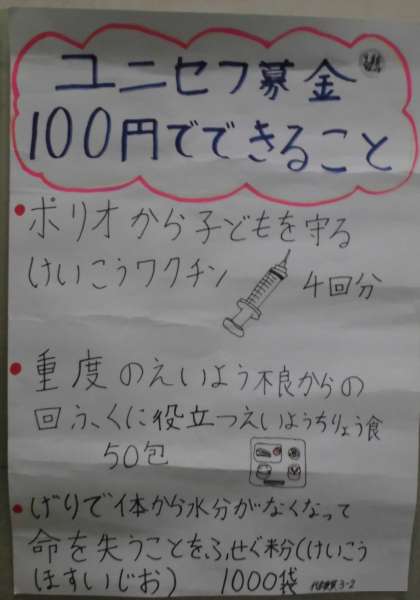 ユニセフ募金
100円でできること
・ポリオから子どもを守る
けいこうワクチン 4回分
・重度のえいよう不良からの
回ふくに役立つえいようちりょう食
50包
・げりで体から水分がなくなって
命を失うことをふせぐ粉(けいこう
ほすいじお) 1000袋 3-2